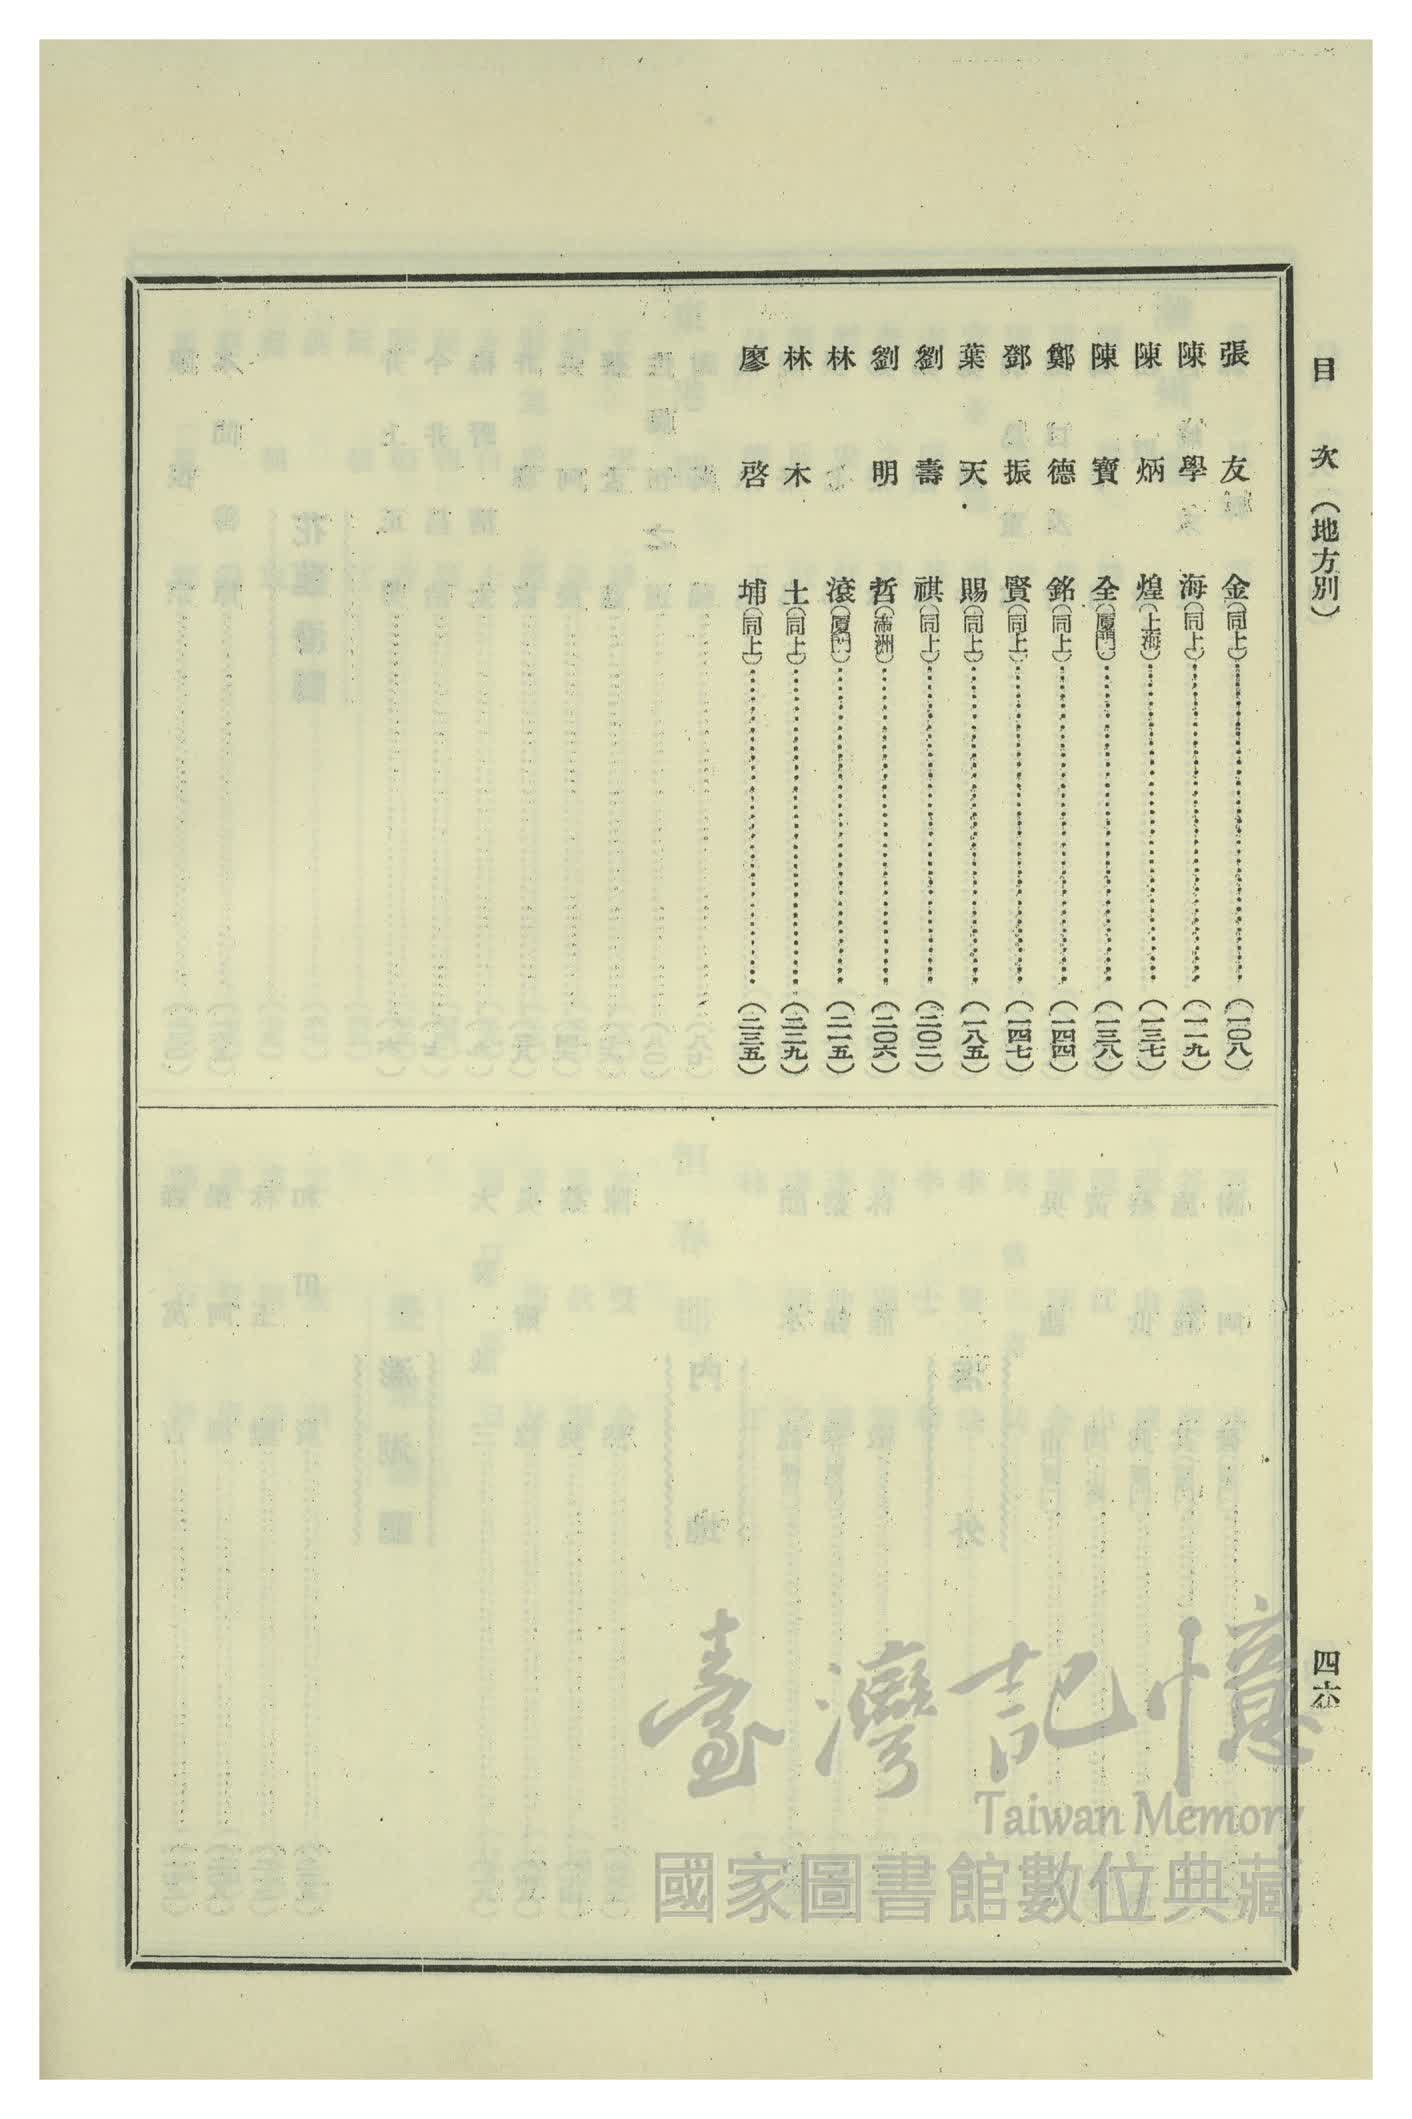 目次(地方別)
四六
張友金(同上)………(一〇八)
陳學海(同上)………(一一九)
陳炳煌(上海)………(一三七)
陳寶全(廈門)………(一三八)
鄭德銘(同上)………(一四四)
鄧振賢(同上)………(一四七)
葉天賜(同上)………(一八五)
劉壽祺(同上)………(二〇二)
劉明哲(滿洲)………(二〇六)
林滾(廈門)………(二一五)
林木土(同上)………(二二九)
廖啓埔(同上)………(二三五)
臺灣記憶
Taiwan Memory
國家圖書館數位典藏